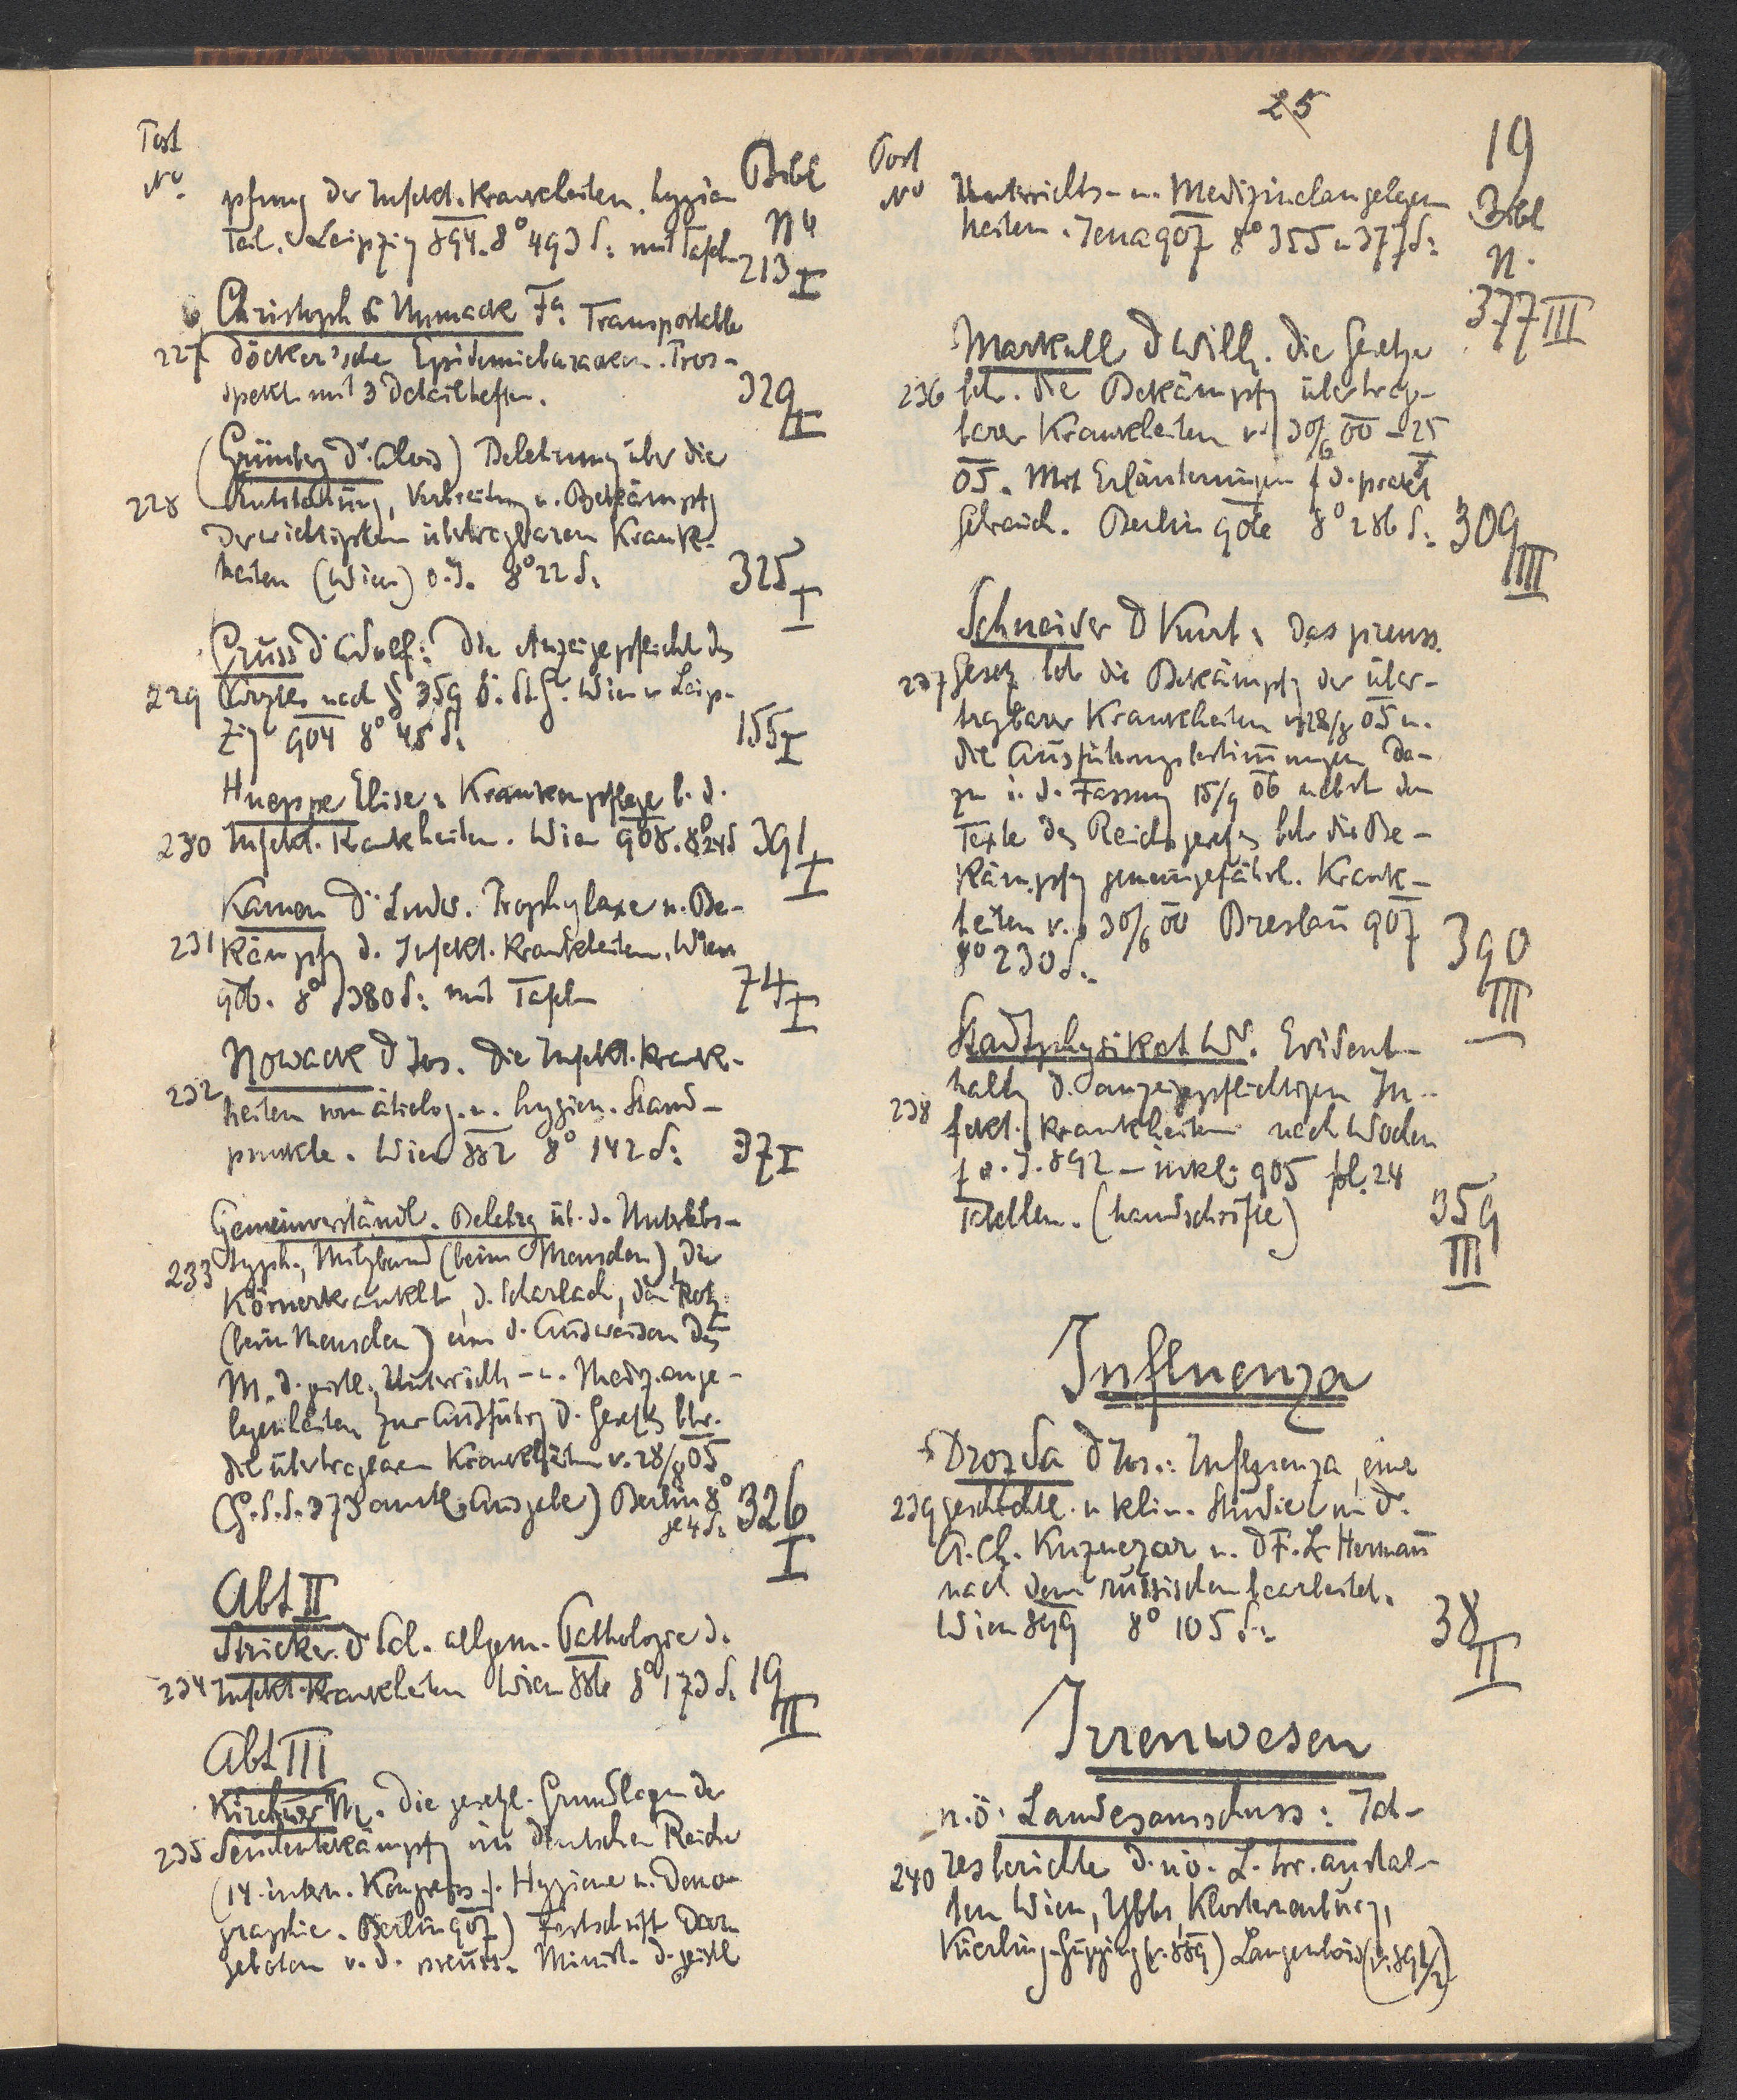 25
19
Post
No
Bibl
No
pfung der Infekt. Krankheiten. hygien
Teil. Leipzig 894. 8° 493 S: mit Tafeln
213 I
Christoph & Unmack Fa: Transportable
227 Döcker'sche Epidemiebaracken. Pros-
spekt mit 3 Detailheften.
329 I
(Grünberg Dr. Alois) Belehrung über die
228 Entstehung, Verbreitung u. Bekämpfg
der wichtigsten übertragbaren Krank-
heiten (Wien) o. J. 8° 22 S:
325 I
Gruss Dr Adolf: Die Anzeigepflicht des
229 Arztes nach § 359 ö. St. G. Wien u Leip-
zig 904 8° 48 S:
155 I
Hueppe Elise: Krankenpflege b. d.
230 Infekt. Krankheiten. Wien 908. 8° 24 S
391 I
Kamen Dr Ludw. Prophylaxe u. Be-
231 kämpfg d. Infekt. Krankheiten. Wien
906. 8° 380 S: mit Tafeln
74 I
Nowack D Jos. Die Infekt. Krank-
232 heiten vom ätiolog. u. hygien. Stand-
punkte. Wien 882 8° 142 S:
37 I
Gemeinverständl. Belehrg üb. d. Unterleibs-
233 typh., Milzbrand (beim Menschen), die
Körnerkrankht, d. Scharlach, den Rotz
(beim Menschen) d. Anweisen des
M. d. geistl. Unterrichts- u. Mediz. ange-
legenheiten zur Ausführg d. Gesetzes btr.
die übertragbaren Krankheiten v. 28/8 05
(G. S. S. 373 amtl. Ausgabe) Berlin 8°
je 4 S:
326 I
Abt II
Stricker D Sal. allgem. Pathologie d.
234 Infekt. Krankheiten Wien 886 8° 173 S.
19 II
Abt III
Kirchner M. Die gesetzl. Grundlagen der
235 Seuchenbekämpfg im Deutschen Reiche
(14. intern. Kongress f. Hygiene u. Demo-
graphie. Berlin 907) Festschrift Dar-
geboten v. d. preuss. Minist. d. geistl
Post
No
Bibl
N.
Unterrichts- u. Medizinalangelegen
heiten. Jena 907 8° 355 u 377 S:
377 III
Markull D Wilh. Die Gesetze
236 btr. die Bekämpfg übertrag-
barer Krankheiten v. 30/6 00 – 25
05. Mit Erläuterungen f d. prakt
Gebrauch. Berlin 906 8° 286 S:
309 III
Schneider D Kurt: Das preuss.
237 Gesetz btr die Bekämpfg der über-
tragbarer Krankheiten v 28/8 05 u.
die Ausführungsbestimmungen da-
zu i. d. Fassung 15/9 06 nebst dem
Texte des Reichsgesetzes btr die Be-
kämpfg gemeingefährl. Krank-
heiten v. 30/6 00 Breslau 907
8° 230 S:
390 III
Stadtphysikat W. Evident-
haltg d. anzeigepflichtigen In-
238 fekt. Krankheiten nach Wochen
f d. J. 892 – inkl. 905 fol. 24
Tabellen. (handschriftl)
359 III
Influenza
Drozda D Jos.: Influenza, eine
239 geschichtl. u klin. Studie v. D.
A. Ch. Kuznezow u. D F. L. Hermann
nach dem russischen bearbeitet.
Wien 899 8° 105 S:
38 II
Irrenwesen
n. ö. Landesausschuss: Jah-
240 resberichte d. nö. L. Irr. anstal-
ten Wien, Ybbs, Klosterneuburg,
Kierling-Gugging (v. 889) Langenlois (v. 891/2)